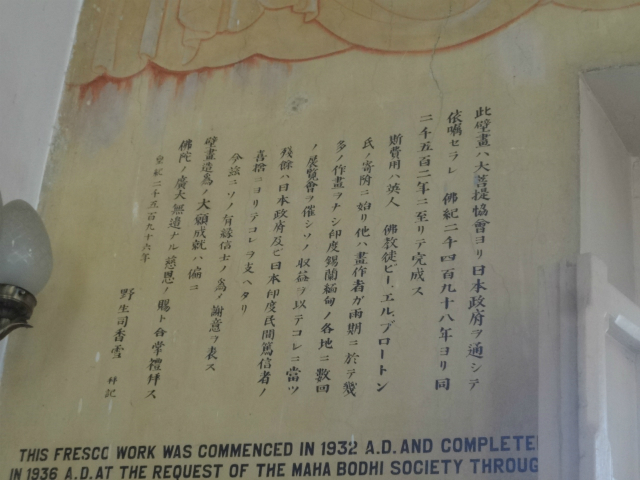 此壁畫ハ大菩提協會ヨリ日本政府ヲ通シテ
依囑セラレ 佛紀二千四百九十八年ヨリ同
二千五百二年ニ至リテ完成ス
斯費用ハ英人 佛教徒ビー、エル、ブロートン
氏ノ寄附ニ始リ他ハ畫作者ガ雨期ニ於テ幾
多ノ作畫ヲナシ印度錫蘭緬甸ノ各地ニ數回
ノ展覧會ヲ催シソノ収益ヲ以テコレニ當ツ
残餘ハ日本政府及ビ日本印度民間篤信者ノ
喜捨ニヨリテコレヲ支ヘタリ
今茲ニソノ有縁信士ノ為メ謝意ヲ表ス
壁畫造為ノ大願成就ハ偏ニ
佛陀ノ廣大無邉ナル慈恩ノ賜ト合掌禮拜ス
皇紀二千五百九十六年
野生司香雪 拜記
THIS FRESCO WORK WAS COMMENCED IN 1932 A.D. AND COMPLETE
IN 1936 A.D. AT THE REQUEST OF THE MAHA BODHI SOCIETY THROUG